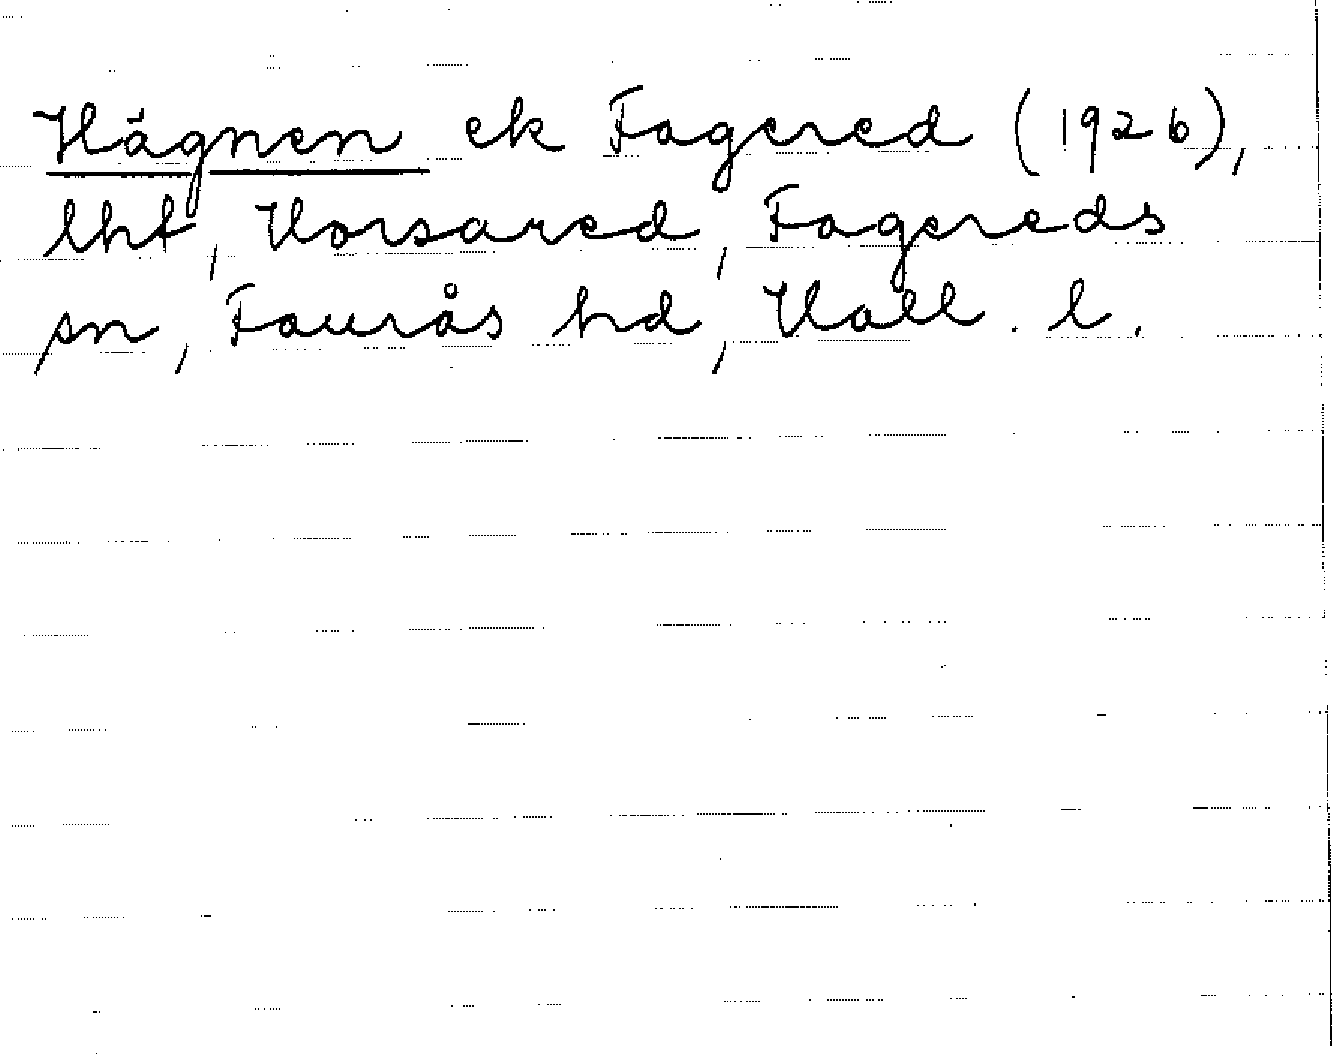 Hägnen ek Fagered (1926),
lht, Horsared, Fagereds
sn, Faurås hd, Hall. l.